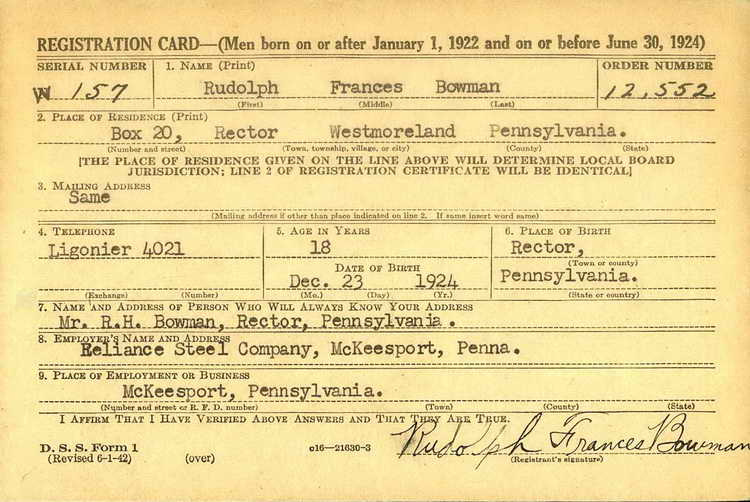 REGISTRATION CARD—(Men born on or after January 1, 1922 and on or before June 30, 1924)
SERIAL NUMBER 1. NAME (Print) ORDER NUMBER
W 157 Rudolph Frances Bowman 12,552
(First) (Middle) (Last)
2. PLACE OF RESIDENCE (Print)
Box 20, Rector Westmoreland Pennsylvania.
(Number and street) (Town, township, village, or city) (County) (State)
[THE PLACE OF RESIDENCE GIVEN ON THE LINE ABOVE WILL DETERMINE LOCAL BOARD
JURISDICTION; LINE 2 OF REGISTRATION CERTIFICATE WILL BE IDENTICAL]
3. MAILING ADDRESS
Same
(Mailing address if other than place indicated on line 2. If same insert word same)
4. TELEPHONE 5. AGE IN YEARS 6. PLACE OF BIRTH
Ligonier 4021 18 Rector,
(Town or county)
DATE OF BIRTH
Dec. 23 1924 Pennsylvania.
(Exchange) (Number) (Mo.) (Day) (Yr.) (State or country)
7. NAME AND ADDRESS OF PERSON WHO WILL ALWAYS KNOW YOUR ADDRESS
Mr. R.H. Bowman, Rector, Pennsylvania.
8. EMPLOYER'S NAME AND ADDRESS
Reliance Steel Company, McKeesport, Penna.
9. PLACE OF EMPLOYMENT OR BUSINESS
McKeesport, Pennsylvania.
(Number and street or R. F. D. number) (Town) (County) (State)
I AFFIRM THAT I HAVE VERIFIED ABOVE ANSWERS AND THAT THEY ARE TRUE.
D. S. S. Form 1 c16—21630-3 Rudolph Frances Bowman
(Revised 6-1-42) (over) (Registrant's signature)